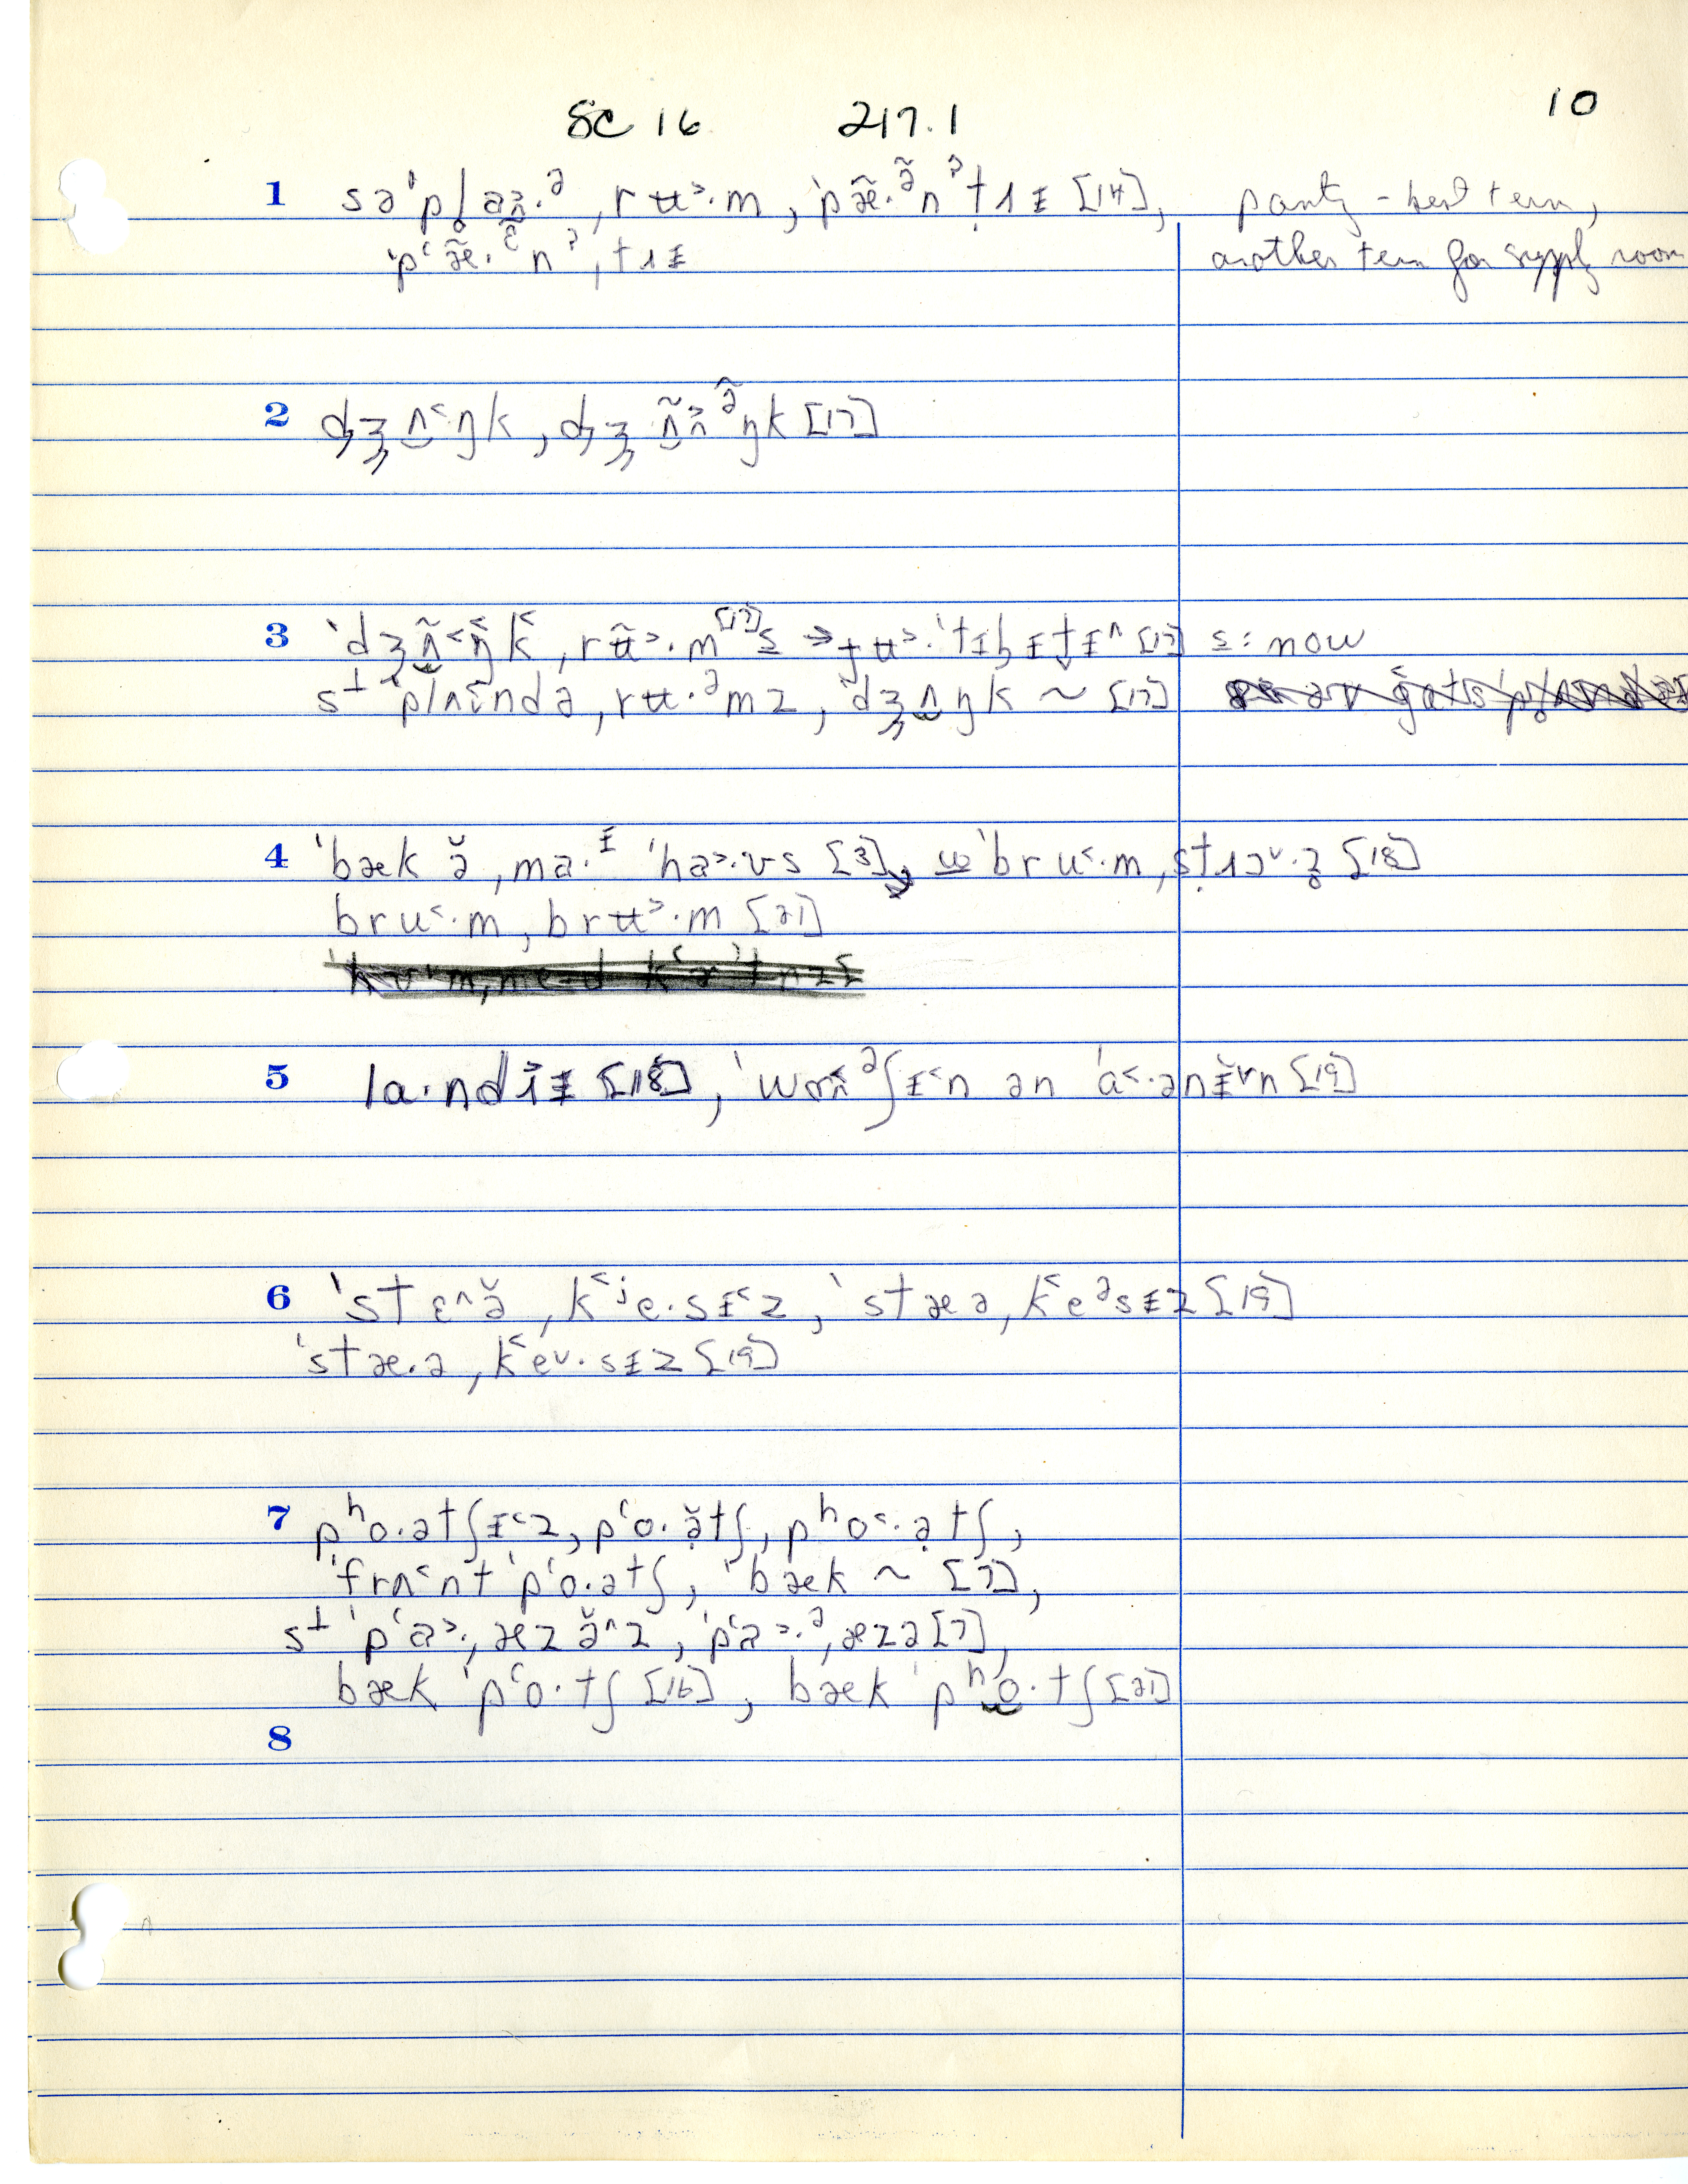 SC 16 217.1 10
1 sə'pl̥aɪ.ᵊ ,rʉ˃.m , 'pæ̃.ᵊ̃nˀt̬ɨɪ [14], pantry - best term,
'p‘æ̃.ᵋ̃nˀ,tɨɪ another term for supply room
2 dʒʌ˂ŋk , dʒʌ̃˃ᵊ̃ŋk [17]
3 'dʒʌ̃˂ŋ˂k˂ , rʉ̃˃.m [17] s → jʉ˃.'tɪlɪtɪ^ [17] s: now
s⊥ 'plʌ˂ndə , rʉ.ᵊmz , 'dʒʌŋk ~ [17]
4 'bæk ə̆ , ma.ᶤ 'ha˃.ʊs [3], w 'bru˂.m , st̬ɨɔ˅.z̥ [18]
bru˂.m , brʉ˃.m [21]
5 la.ndɨɪ [18] , 'wɒʌᵊʃɪ˂n ən 'a˂.ənɪ̆˅n [19]
6 'stɛ^ə̆ , k˂ʲe.sɪ˂z , 'stæə , k˂eᵊsɪz [19]
'stæ.ə , k˂e˅.sɪz [19]
7 pʰo.ətʃɪ˂z , p‘o.ə̣̆tʃ , pʰo˂.ə̣tʃ ,
'frʌ˂nt 'p‘o.ətʃ , 'bæk ~ [7] ,
s⊥ 'p‘a˃. , æzə̆^z , 'p‘a˃.ᵊ , æzə [7] ,
bæk 'p‘o.tʃ [16] , bæk 'pʰo.tʃ [21]
8